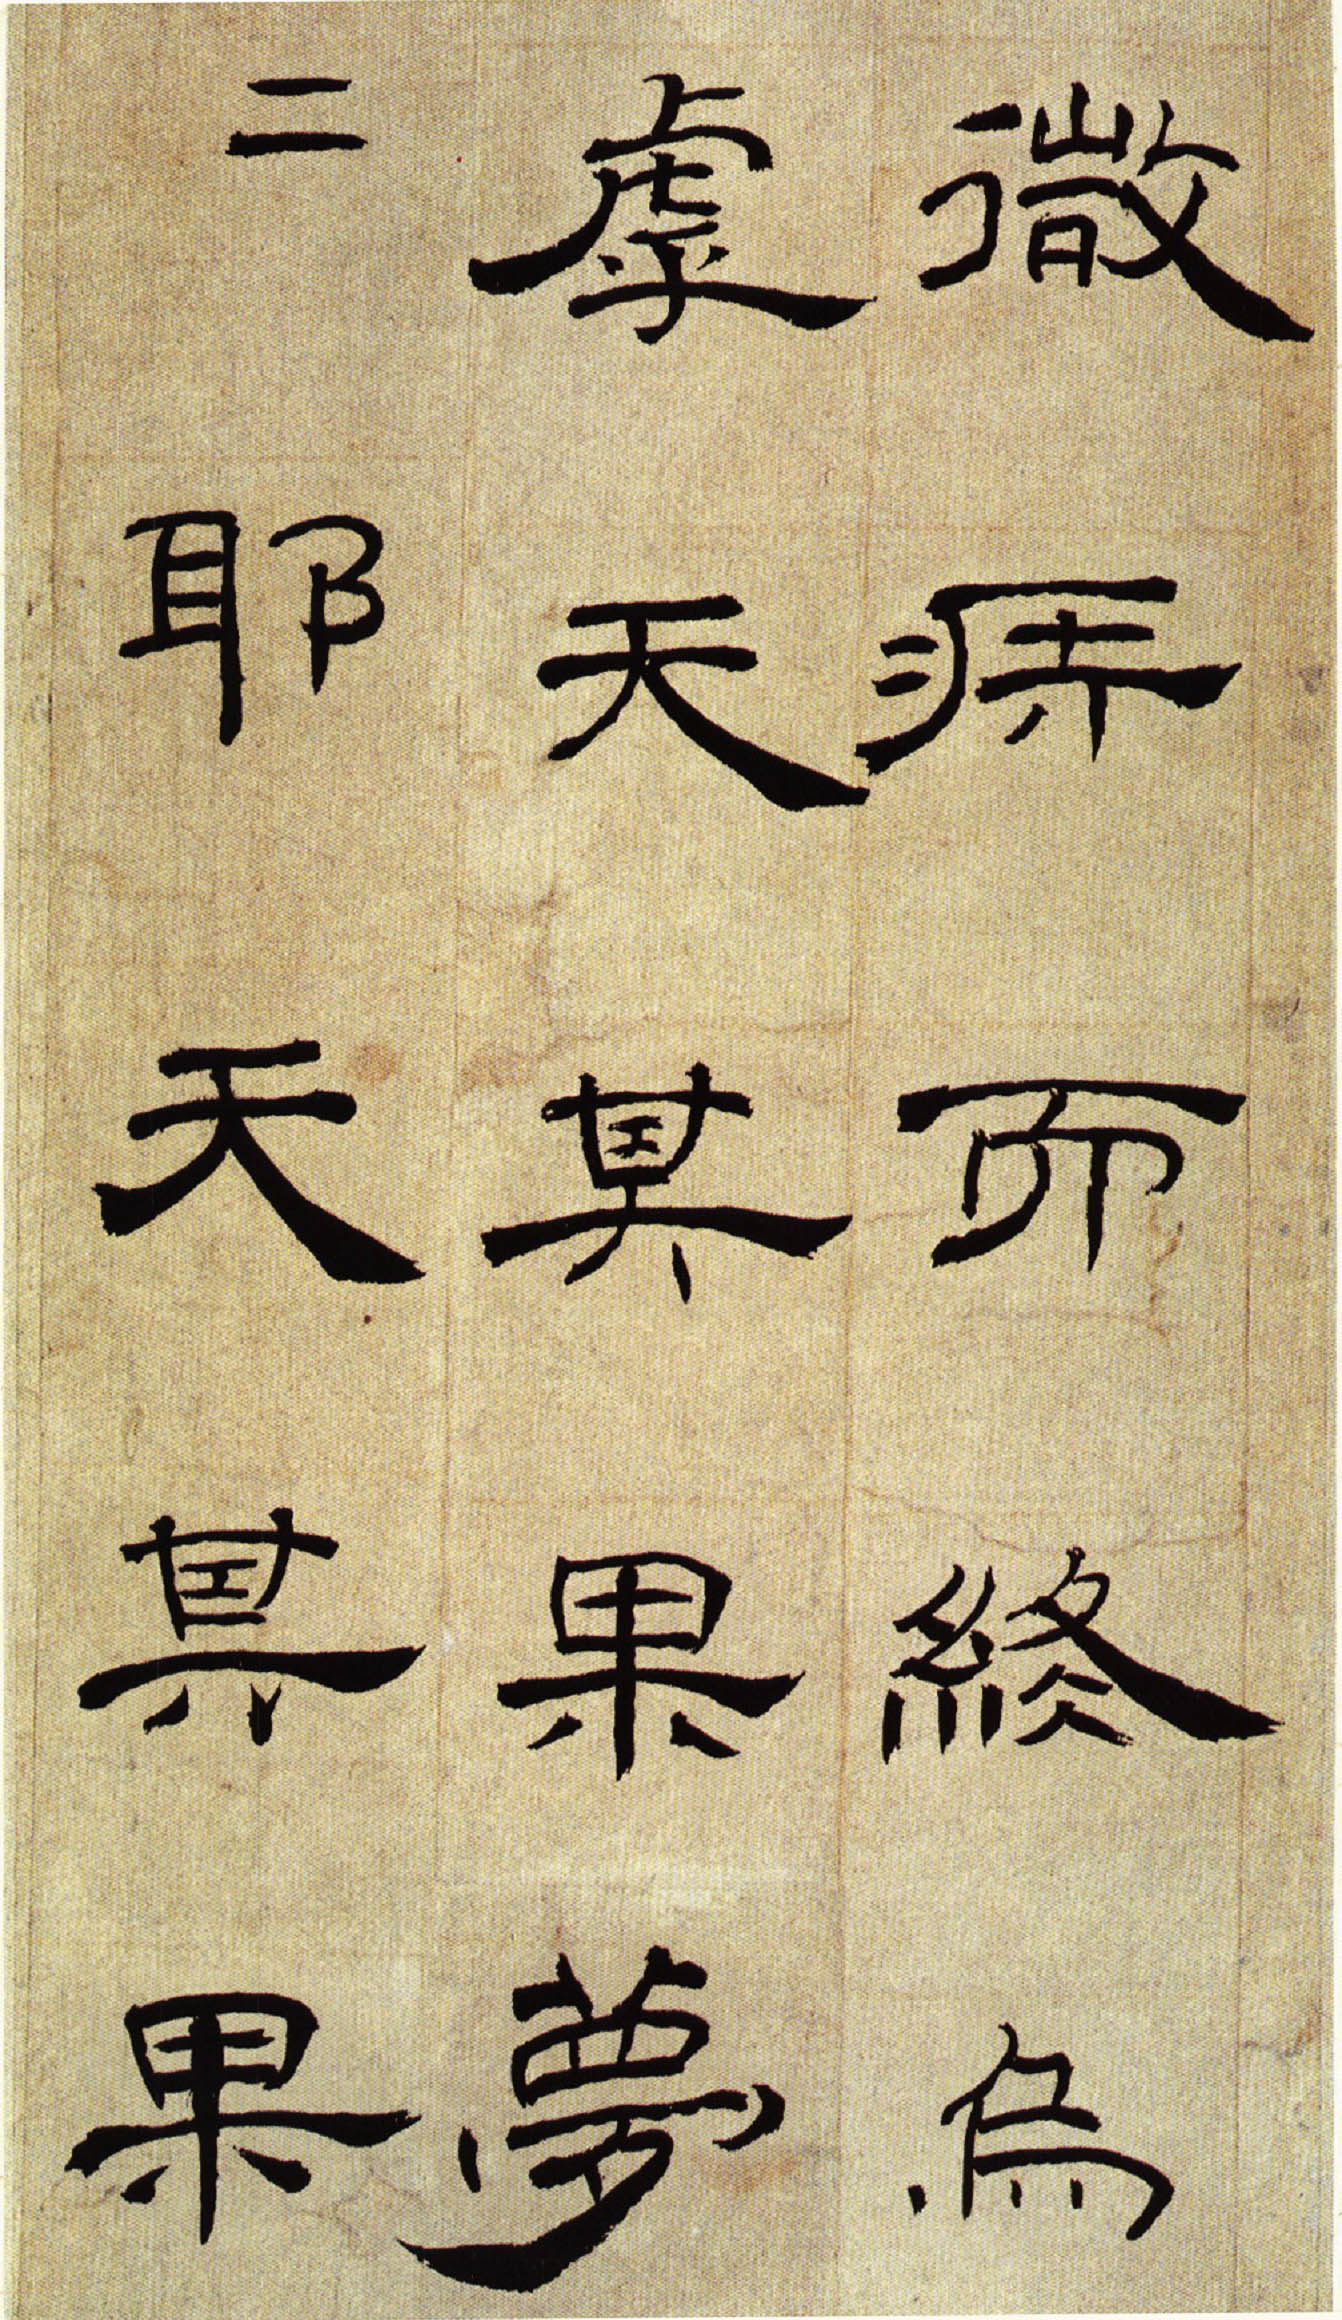 微而終烏
虖天其果夢
二耶天其果